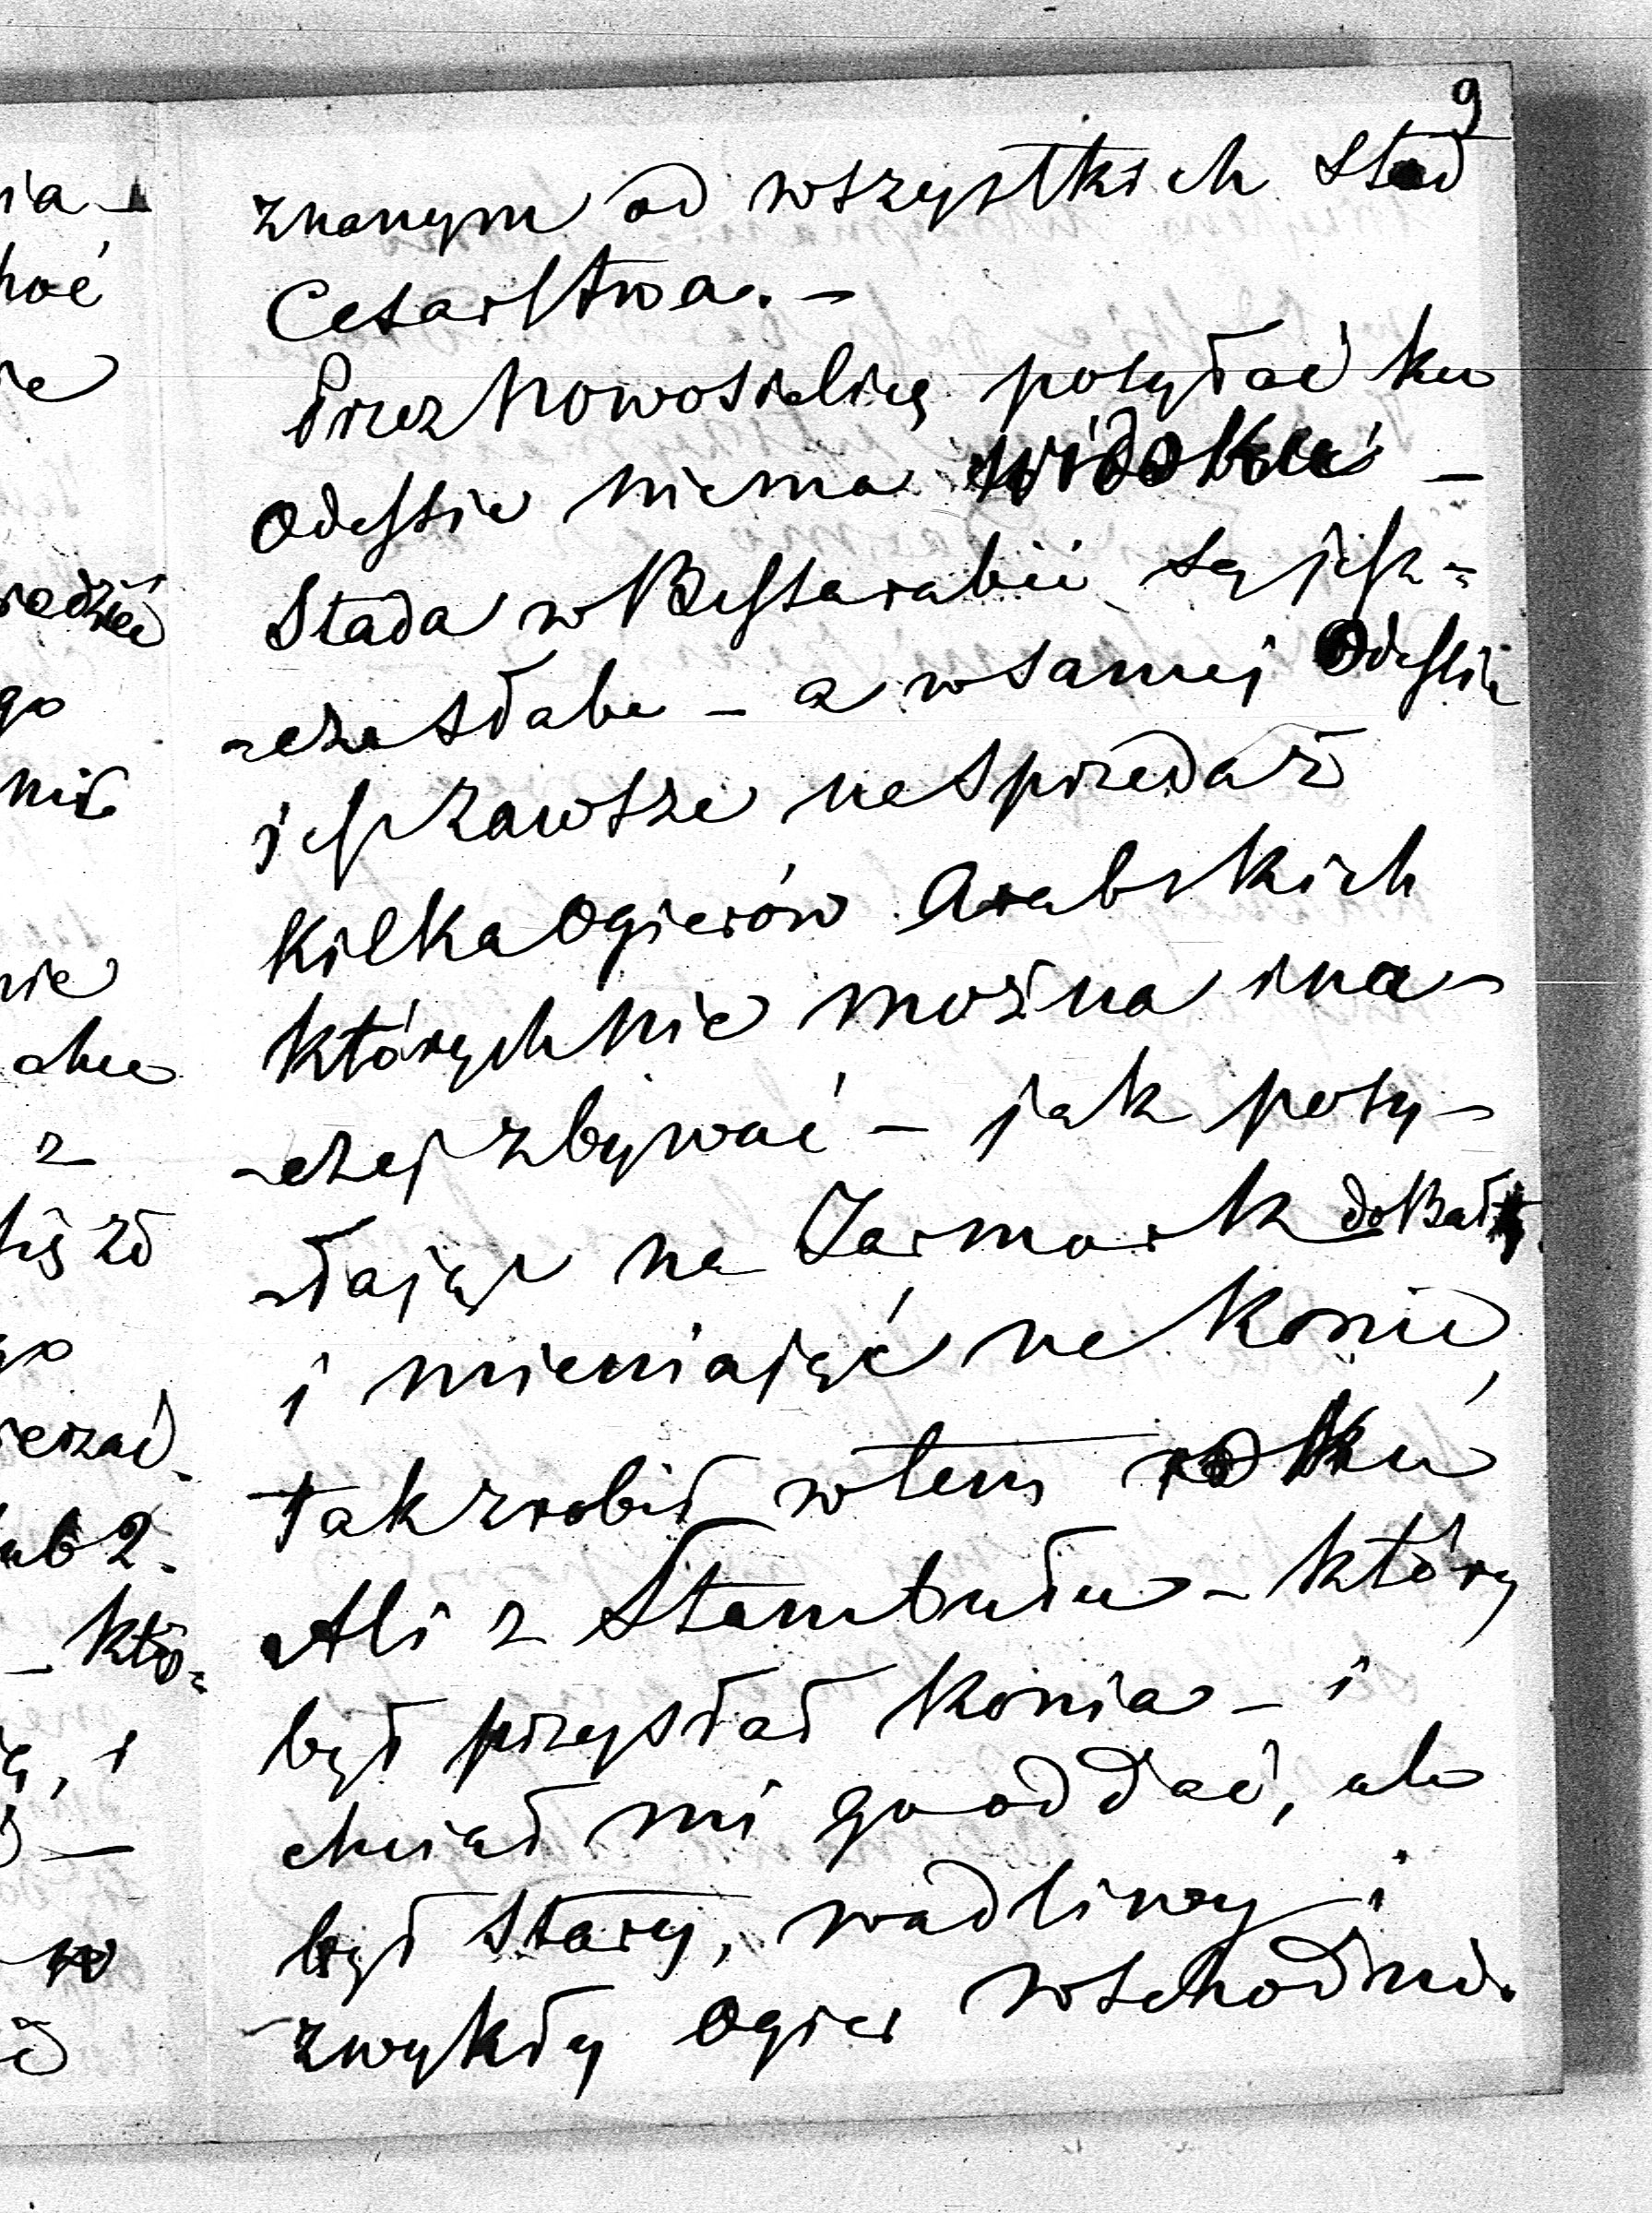 9
znanym od wszystkich stad
Cesarstwa. –
Przez Nowosielicę posyłać ku
Odessie niema widoku –
Stada w Bessarabii są jesz=
-cze słabe – a w samej Odessie
jest zawsze na sprzedaż
kilka Ogierów Arabskich
których nie można ina-
-czej zbywać – jak posy-
-łając na Jarmark do Bałty
i mieniając na konie,
tak zrobił w tem roku
Ali z Stambułu – który
był przysłał konia – i
chciał mi go oddać, ale
był stary, wadliwy i
zwykły Ogier wschodni.